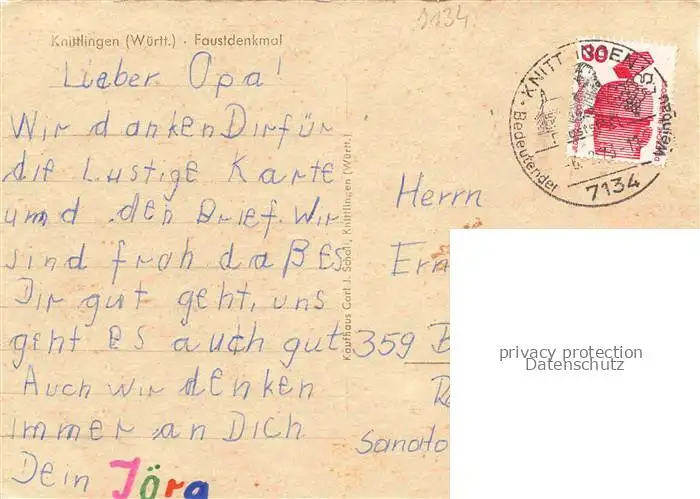 9134.
Knittlingen (Württ.) · Faustdenkmal
Lieber Opa!
Wir danken Dir für
die Lustige Karte
und den Brief. Wir
sind froh daß ES
Dir gut geht, uns
geht es auch gut
Auch wir denken
immer an DICH
Dein Jörg
Kaufhaus Carl J. Scholl, Knittlingen (Württ.)
30
KNITTLINGEN
Bedeutender
Weinbau
7134
Herrn
Ern
359 B
Sanato
privacy protection
Datenschutz